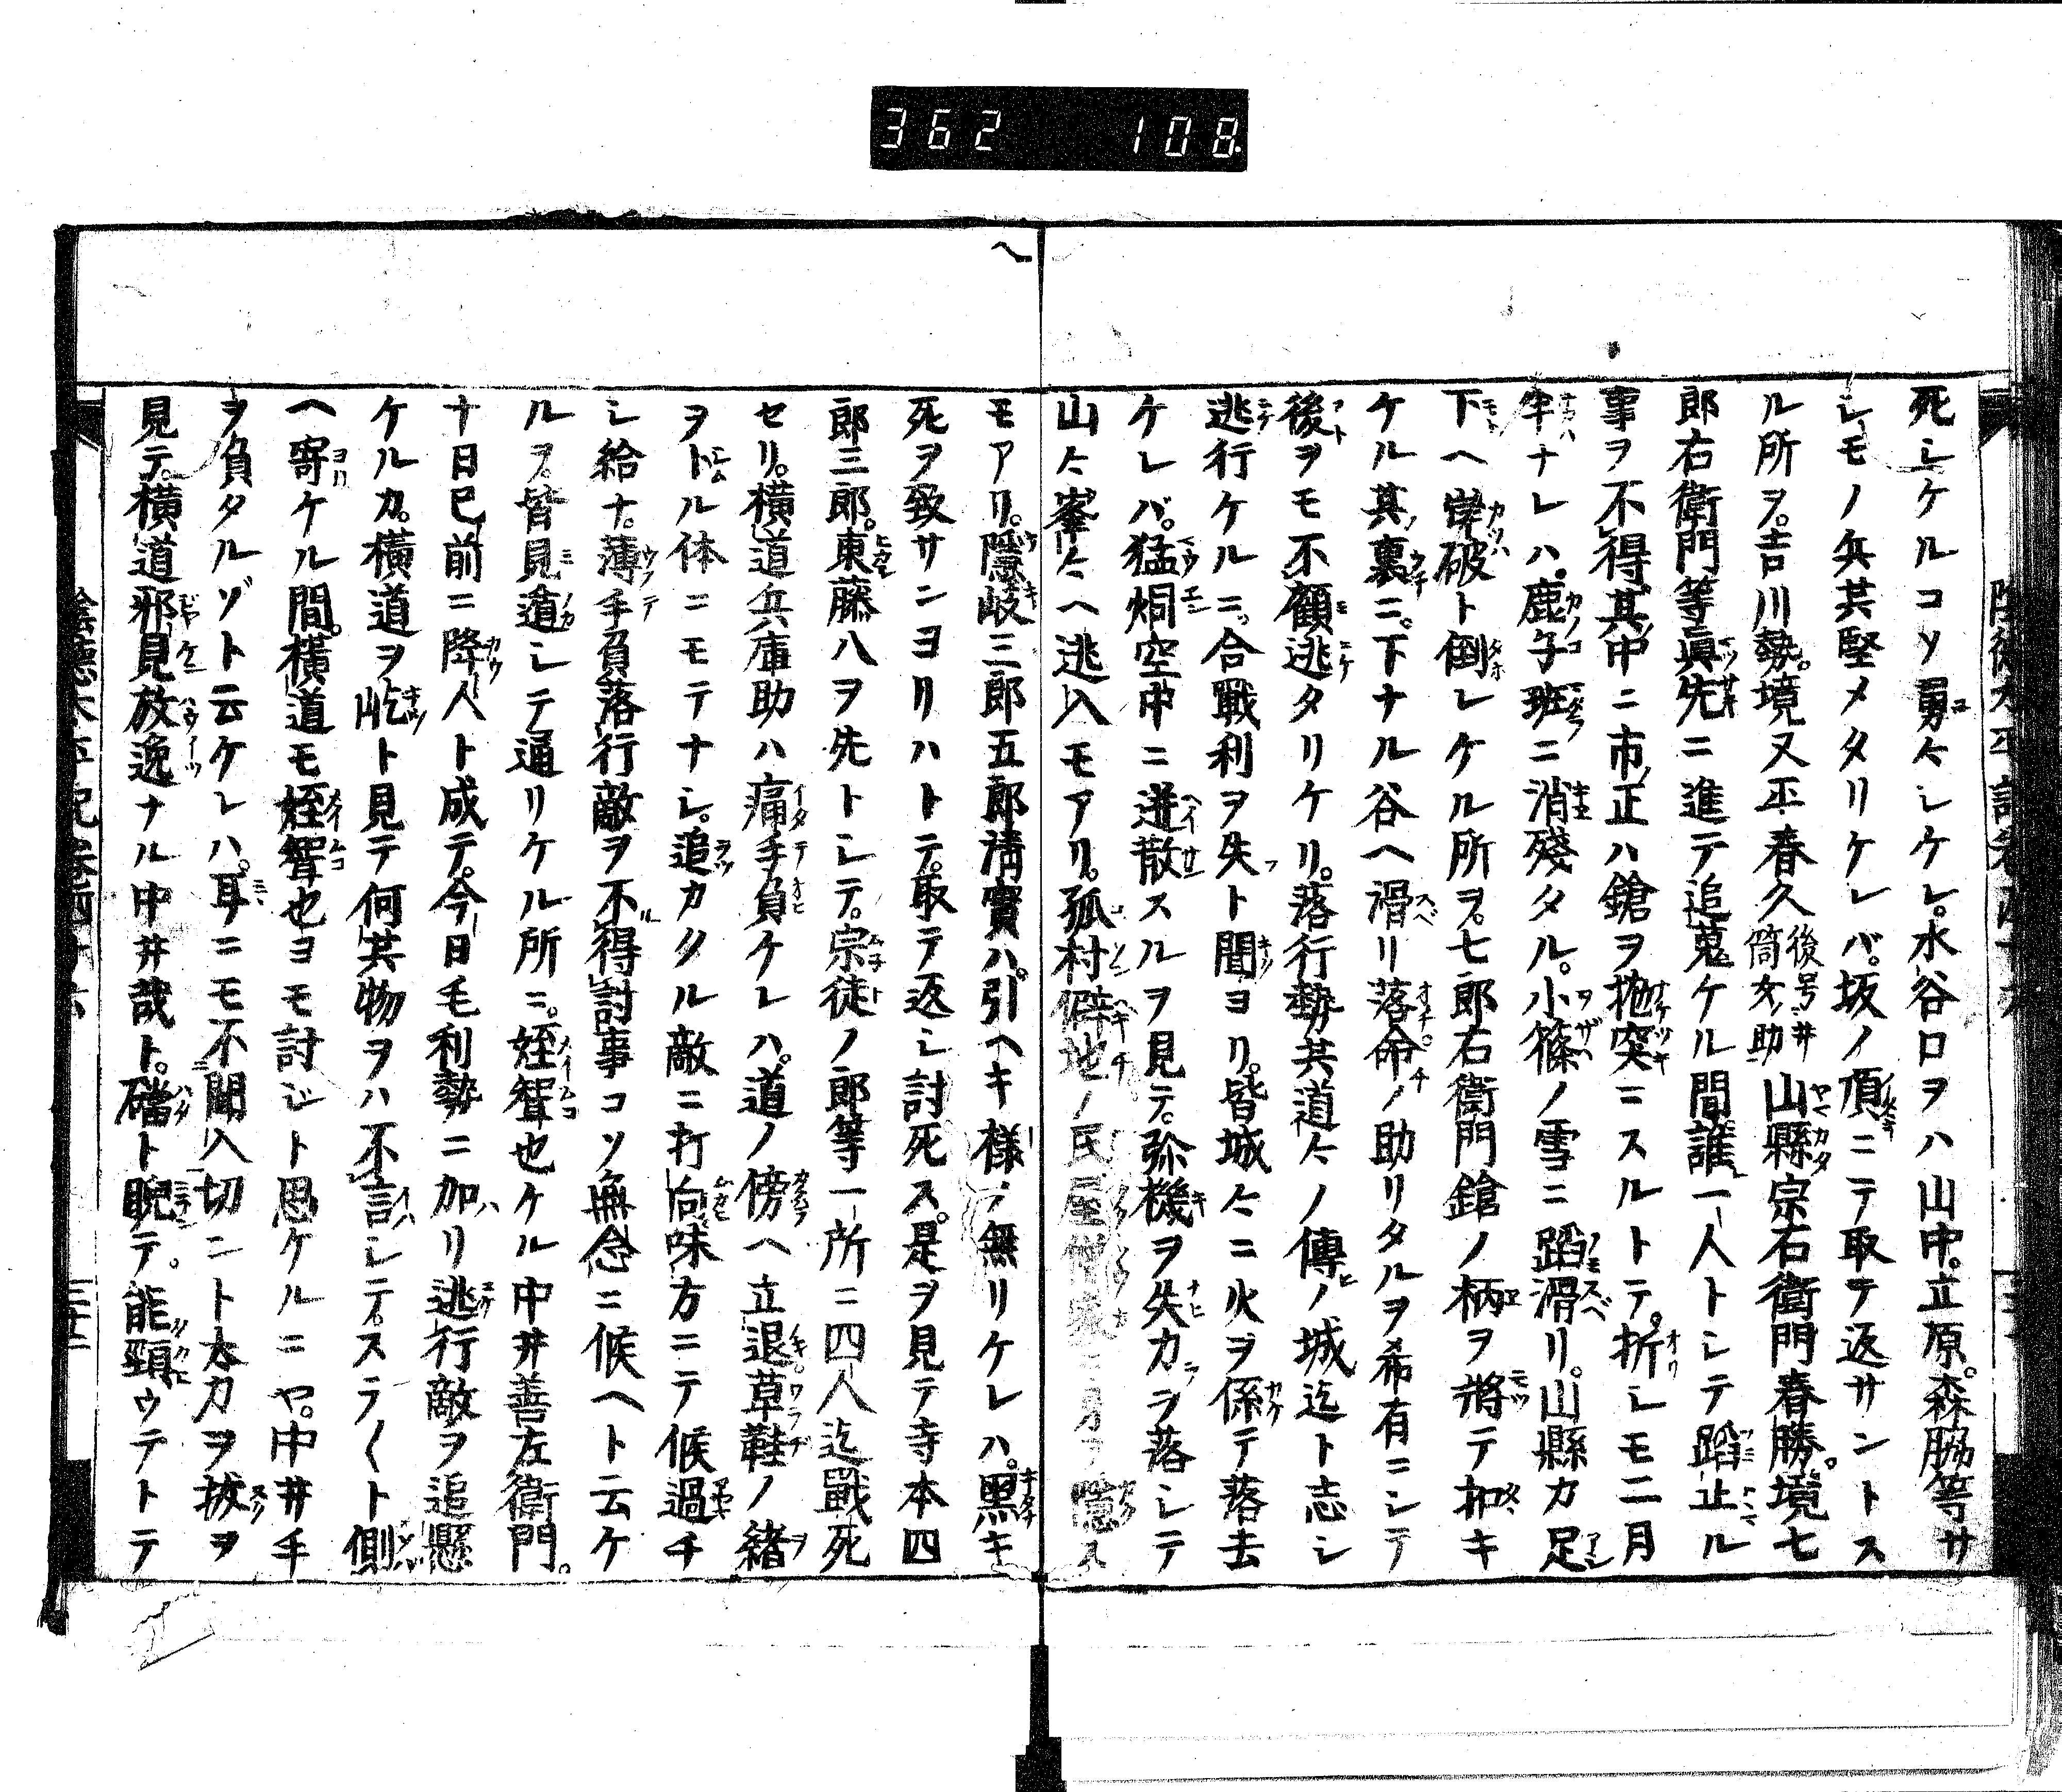 362 108.
死シケルコソ勇々シケレ。水谷口ヲハ山中。立原。森脇等サ
シモノ兵其堅メタリケレバ。坂ノ頂ニテ取テ返サントス
ル所ヲ。吉川勢。境又平春久後号井筒女助山縣宗右衛門春勝。境七
郎右衛門等眞先ニ進テ追蒐ケル間誰一人トシテ蹈止ル
事ヲ不得其中ニ市正ハ鎗ヲ抛突ニスルトテ。折シモ二月
半ナレハ。鹿子班ニ消殘タル。小篠ノ雪ニ蹈滑リ。山縣カ足
下ヘ岸破ト倒レケル所ヲ。七郎右衛門鎗ノ柄ヲ將テ扣キ
ケル其裏ニ。下ナル谷ヘ滑リ落命ノ助リタルヲ希有ニシテ
後ヲモ不顧逃タリケリ。落行勢共道々ノ傳ノ城迄ト志シ
逃行ケルニ。合戰利ヲ失ト聞ヨリ。皆城々ニ火ヲ係テ落去
ケレバ。猛烟空中ニ迸散スルヲ見テ。弥機ヲ失カラ落シテ
山々峯々ヘ逃入モアリ。孤村僻地ノ民屋ニ身ヲ隱ス
モアリ。隱岐三郎五郎淸實ハ。引ヘキ様ノ無リケレハ。黑キ
死ヲ致サンヨリハトテ。取テ返シ討死ス。是ヲ見テ寺本四
郎三郎。東藤八ヲ先トシテ。宗徒ノ郎等一所ニ四人迄戰死
セリ。横道兵庫助ハ痛手負ケレハ。道ノ傍ヘ立退草鞋ノ緒
ヲトル体ニモテナシ。追カクル敵ニ打向味方ニテ候過チ
シ給ナ。薄手負落行敵ヲ不得討事コソ無念ニ候ヘト云ケ
ルヲ。皆見遁シテ通リケル所ニ。姪聟也ケル中井善左衛門。
十日已前ニ降人ト成テ。今日毛利勢ニ加リ逃行敵ヲ追懸
ケルカ。横道ヲ屹ト見テ何共物ヲハ不言シテ。スラ〱ト側
ヘ寄ケル間。横道モ姪聟也ヨモ討ジト思ケルニヤ。中井手
ヲ負タルゾト云ケレハ。耳ニモ不聞入切ント太刀ヲ拔ヲ
見テ。横道邪見放逸ナル中井哉ト。礑ト睨テ。能頸ウテトテ